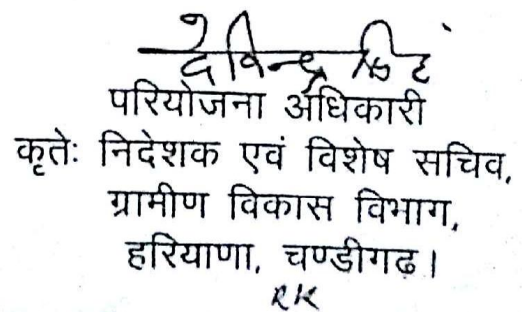 देविन्द्र सिंह
परियोजना अधिकारी
कृतेः निदेशक एवं विशेष सचिव,
ग्रामीण विकास विभाग,
हरियाणा, चण्डीगढ़।
RK